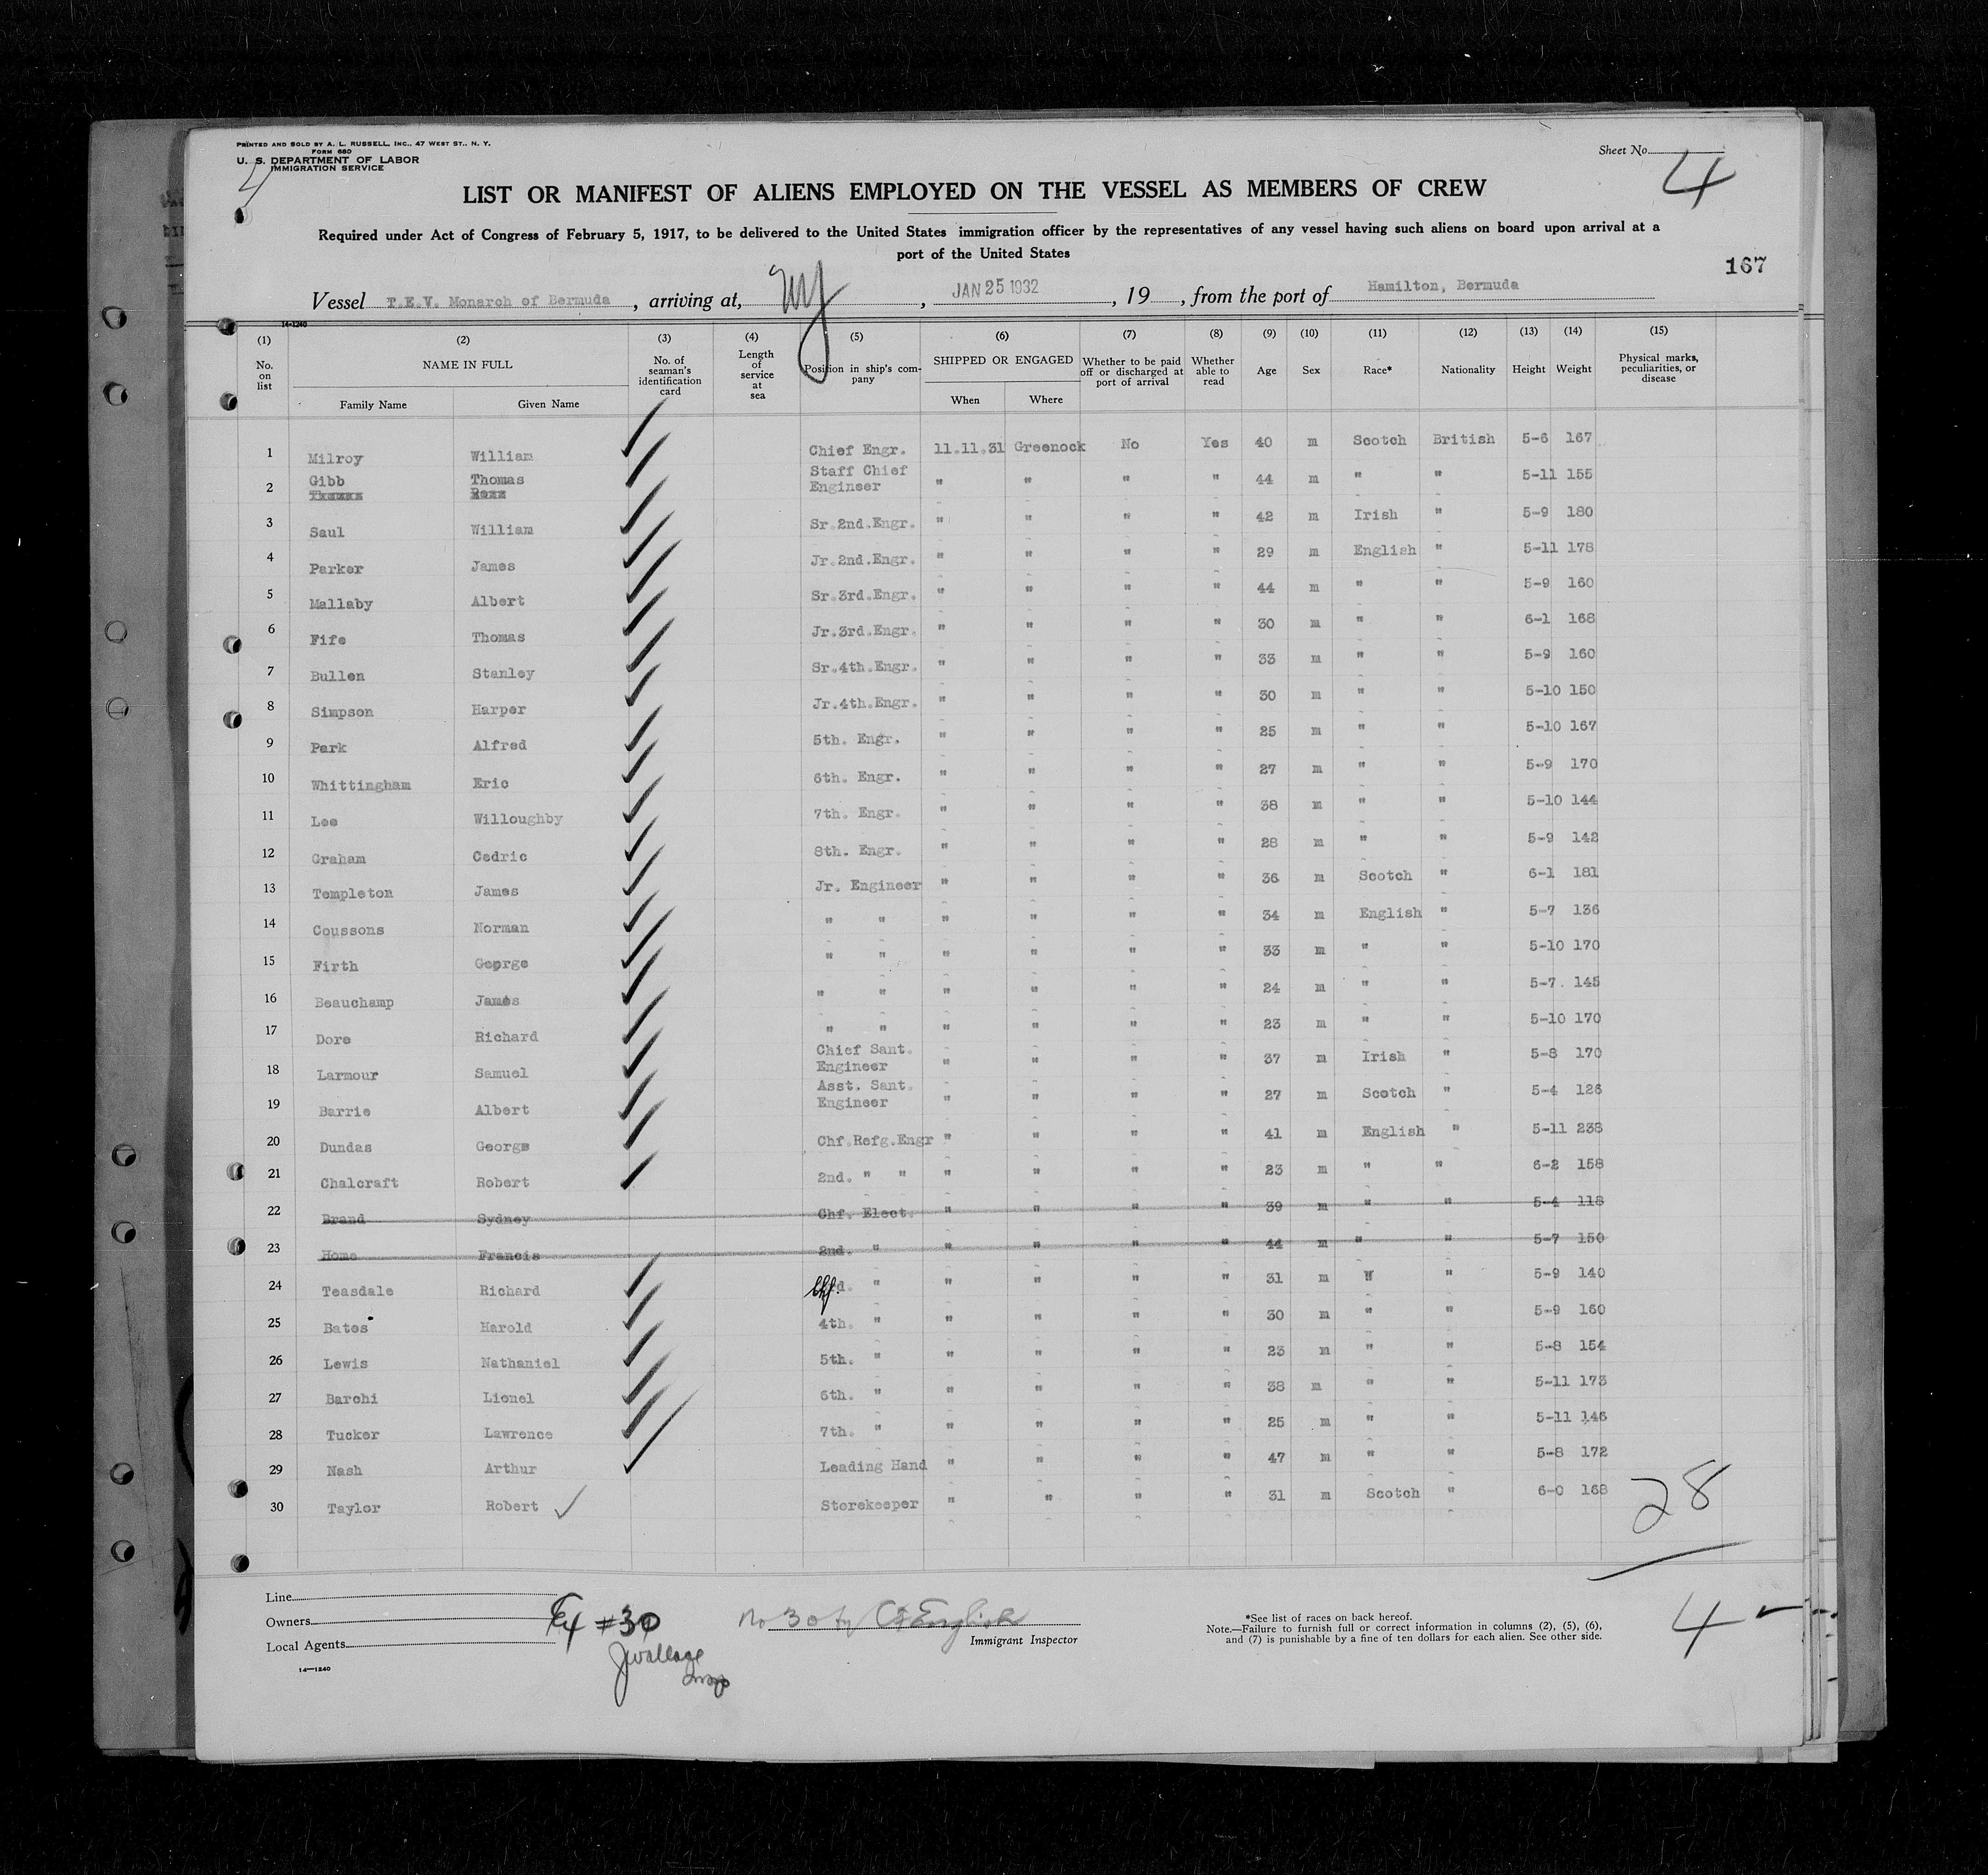 PRINTED AND SOLD BY A. L. RUSSELL, INC., 47 WEST ST., N. Y.
FORM 680
U. S. DEPARTMENT OF LABOR
IMMIGRATION SERVICE
Sheet No. 4
LIST OR MANIFEST OF ALIENS EMPLOYED ON THE VESSEL AS MEMBERS OF CREW
Required under Act of Congress of February 5, 1917, to be delivered to the United States immigration officer by the representatives of any vessel having such aliens on board upon arrival at a
port of the United States
167
Vessel T.E.V. Monarch of Bermuda, arriving at, NY, JAN 25 1932, 19, from the port of Hamilton, Bermuda
14-1240
(1) (2) (3) (4) (5) (6) (7) (8) (9) (10) (11) (12) (13) (14) (15)
No. on list NAME IN FULL No. of seaman's identification card Length of service at sea Position in ship's company SHIPPED OR ENGAGED Whether to be paid off or discharged at port of arrival Whether able to read Age Sex Race* Nationality Height Weight Physical marks, peculiarities, or disease
Family Name Given Name When Where
1 Milroy William Chief Engr. 11.11.31 Greenock No Yes 40 m Scotch British 5-6 167
2 Gibb Thomas Staff Chief Engineer " " " " 44 m " " 5-11 155
3 Saul William Sr.2nd.Engr. " " " " 42 m Irish " 5-9 180
4 Parker James Jr.2nd.Engr. " " " " 29 m English " 5-11 178
5 Mallaby Albert Sr.3rd.Engr. " " " " 44 m " " 5-9 160
6 Fife Thomas Jr.3rd.Engr. " " " " 30 m " " 6-1 168
7 Bullen Stanley Sr.4th.Engr. " " " " 33 m " " 5-9 160
8 Simpson Harper Jr.4th.Engr. " " " " 30 m " " 5-10 150
9 Park Alfred 5th. Engr. " " " " 25 m " " 5-10 167
10 Whittingham Eric 6th. Engr. " " " " 27 m " " 5-9 170
11 Lee Willoughby 7th. Engr. " " " " 38 m " " 5-10 144
12 Graham Cedric 8th. Engr. " " " " 28 m " " 5-9 142
13 Templeton James Jr. Engineer " " " " 36 m Scotch " 6-1 181
14 Coussons Norman " " " " " " 34 m English " 5-7 136
15 Firth George " " " " " " 33 m " " 5-10 170
16 Beauchamp James " " " " " " 24 m " " 5-7. 145
17 Dore Richard " " " " " " 23 m " " 5-10 170
18 Larmour Samuel Chief Sant. Engineer " " " " 37 m Irish " 5-8 170
19 Barrie Albert Asst. Sant. Engineer " " " " 27 m Scotch " 5-4 126
20 Dundas George Chf.Refg.Engr " " " " 41 m English " 5-11 238
21 Chalcraft Robert 2nd. " " " " " " 23 m " " 6-2 158
22 Brand Sydney Chf. Elect. " " " " 39 m " " 5-4 118
23 Home Francis 2nd. " " " " " 44 m " " 5-7 150
24 Teasdale Richard Chf. " " " " " 31 m " " 5-9 140
25 Bates Harold 4th. " " " " " 30 m " " 5-9 160
26 Lewis Nathaniel 5th. " " " " " 23 m " " 5-8 154
27 Barchi Lionel 6th. " " " " " 38 m " " 5-11 173
28 Tucker Lawrence 7th. " " " " " 25 m " " 5-11 146
29 Nash Arthur Leading Hand " " " " 47 m " " 5-8 172
30 Taylor Robert Storekeeper " " " " 31 m Scotch " 6-0 168
28
Line
Owners
Local Agents
14—1240
#30
J Wallace
Insp
No 30 by English
Immigrant Inspector
*See list of races on back hereof.
Note.—Failure to furnish full or correct information in columns (2), (5), (6),
and (7) is punishable by a fine of ten dollars for each alien. See other side.
4 -